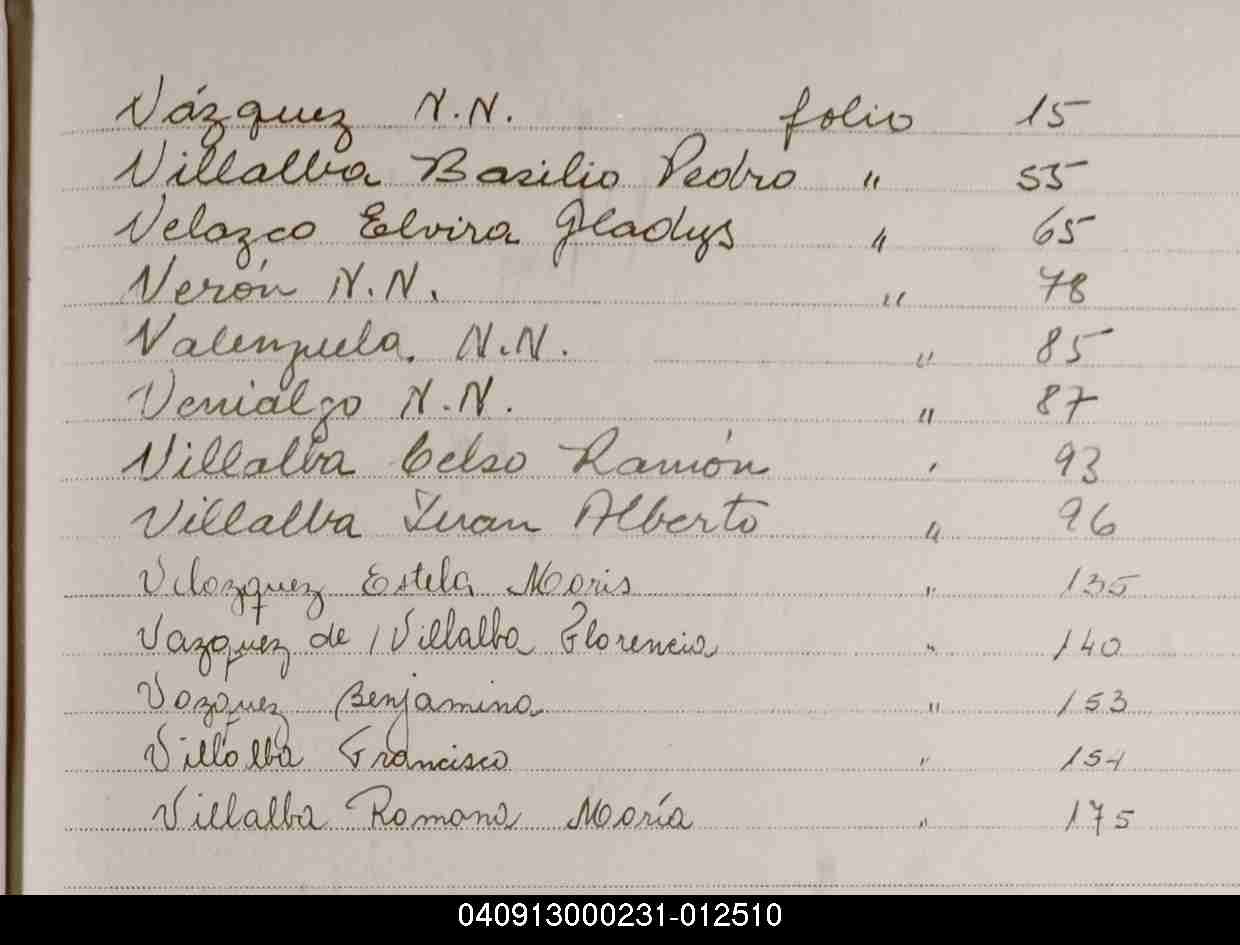 Vázquez N.N. folio 15
Villalba Basilio Pedro " 55
Velazco Elvira Gladys " 65
Verón N.N. " 78
Valenzuela N.N. " 85
Venialgo N.N. " 87
Villalba Celso Ramón " 93
Villalba Juan Alberto " 96
Velazquez Estela Maris " 135
Vazquez de Villalba Florencia " 140
Vazquez Benjamina " 153
Villalba Francisco " 154
Villalba Romana María " 175
040913000231-012510